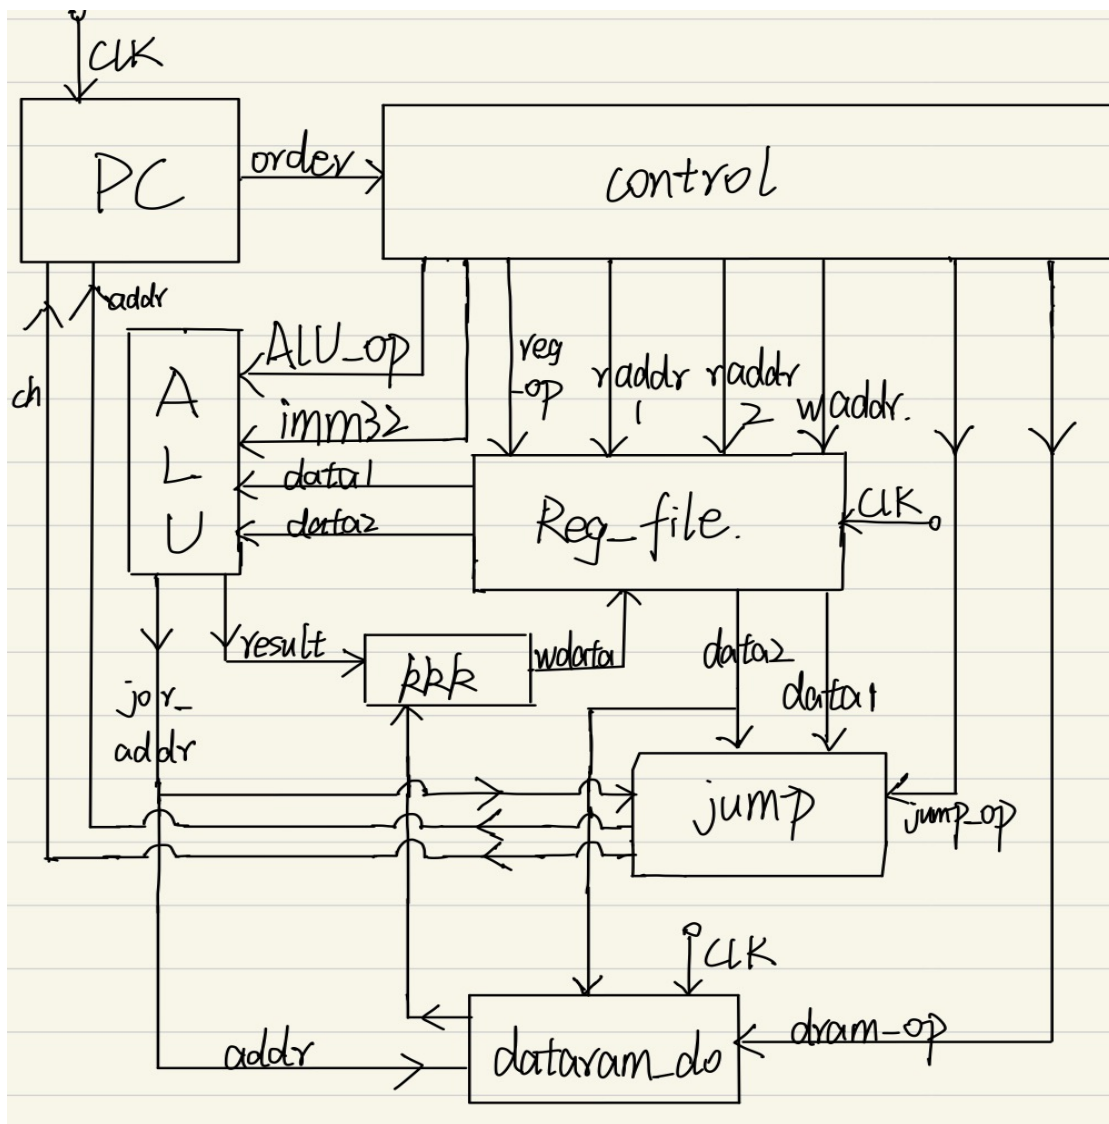 CLK
PC
order
control
addr
ch
ALU
ALU_op
imm32
data1
data2
reg
_op
raddr
1
raddr
2
waddr.
Reg_file.
CLK
result
kkk
wdata
data2
data1
jor_
addr
jump
jump_op
CLK
addr
dataram_do
dram-op